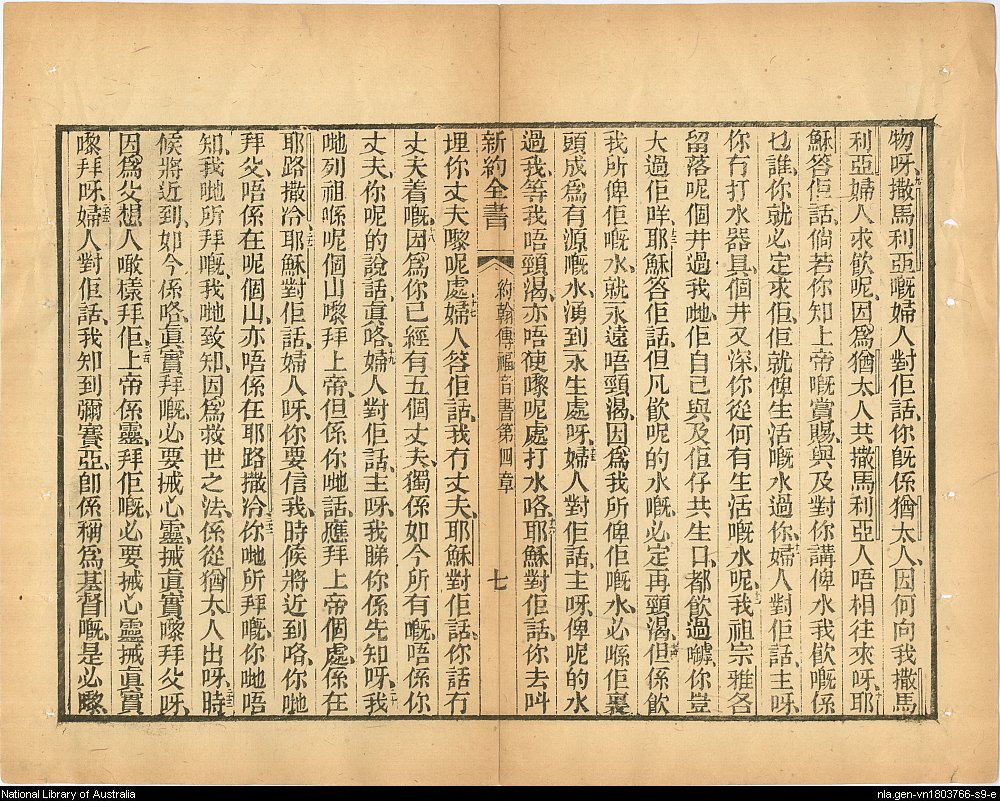 物呀、撒馬利亞嘅婦人對佢話、你旣係猶太人、因何向我撒馬
利亞婦人求飮呢、因爲猶太人共撒馬利亞人唔相往來呀、耶
穌答佢話、倘若你知上帝嘅賞賜、與及對你講俾水我飮嘅係
乜誰、你就必定求佢、佢就俾生活嘅水過你、婦人對佢話、主呀、
你冇打水器具、個井又深、你從何有生活嘅水呢、我祖宗雅各
留落呢個井過我哋、佢自己與及佢仔共生口、都飮過嚹、你豈
大過佢咩、耶穌答佢話、但凡飮呢的水嘅、必定再頸渴、但係飮
我所俾佢嘅水、就永遠唔頸渴、因爲我所俾佢嘅水、必喺佢裏
頭成爲有源嘅水、湧到永生處呀、婦人對佢話、主呀、俾呢的水
過我、等我唔頸渴、亦唔使嚟呢處打水咯、耶穌對佢話、你去叫
新約全書 約翰傳福音書第四章 七
埋你丈夫嚟呢處、婦人答佢話、我冇丈夫、耶穌對佢話、你話冇
丈夫着嘅、因爲你已經有五個丈夫、獨係如今所有嘅、唔係你
丈夫、你呢的說話眞咯、婦人對佢話、主呀、我睇你係先知呀、我
哋列祖喺呢個山嚟拜上帝、但係你哋話、應拜上帝個處、係在
耶路撒冷、耶穌對佢話、婦人呀、你要信我、時候將近到咯、你哋
拜父、唔係在呢個山、亦唔係在耶路撒冷、你哋所拜嘅、你哋唔
知、我哋所拜嘅、我哋致知、因爲救世之法、係從猶太人出呀、時
候將近到、如今係咯、眞實拜嘅、必要搣心靈、搣眞實嚟拜父呀、
因爲父想人噉樣拜佢、上帝係靈、拜佢嘅、必要搣心靈搣眞實
嚟拜呀、婦人對佢話、我知到彌賽亞、卽係稱爲基督嘅、是必嚟、
National Library of Australia
nla.gen-vn1803766-s9-e